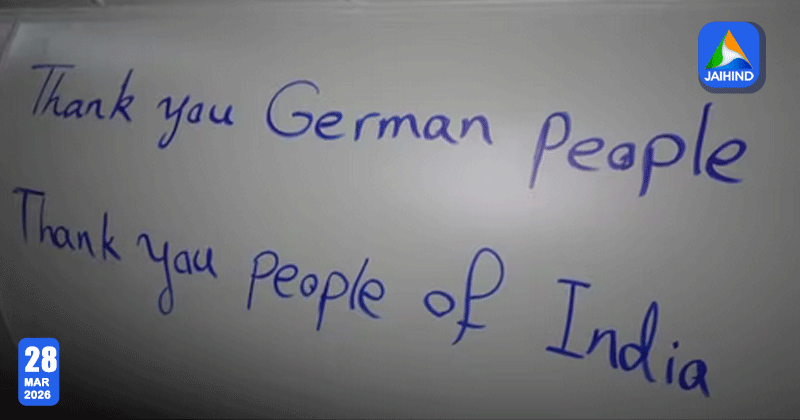 JAIHIND
Thank you German People
Thank you people of India
28
MAR
2026